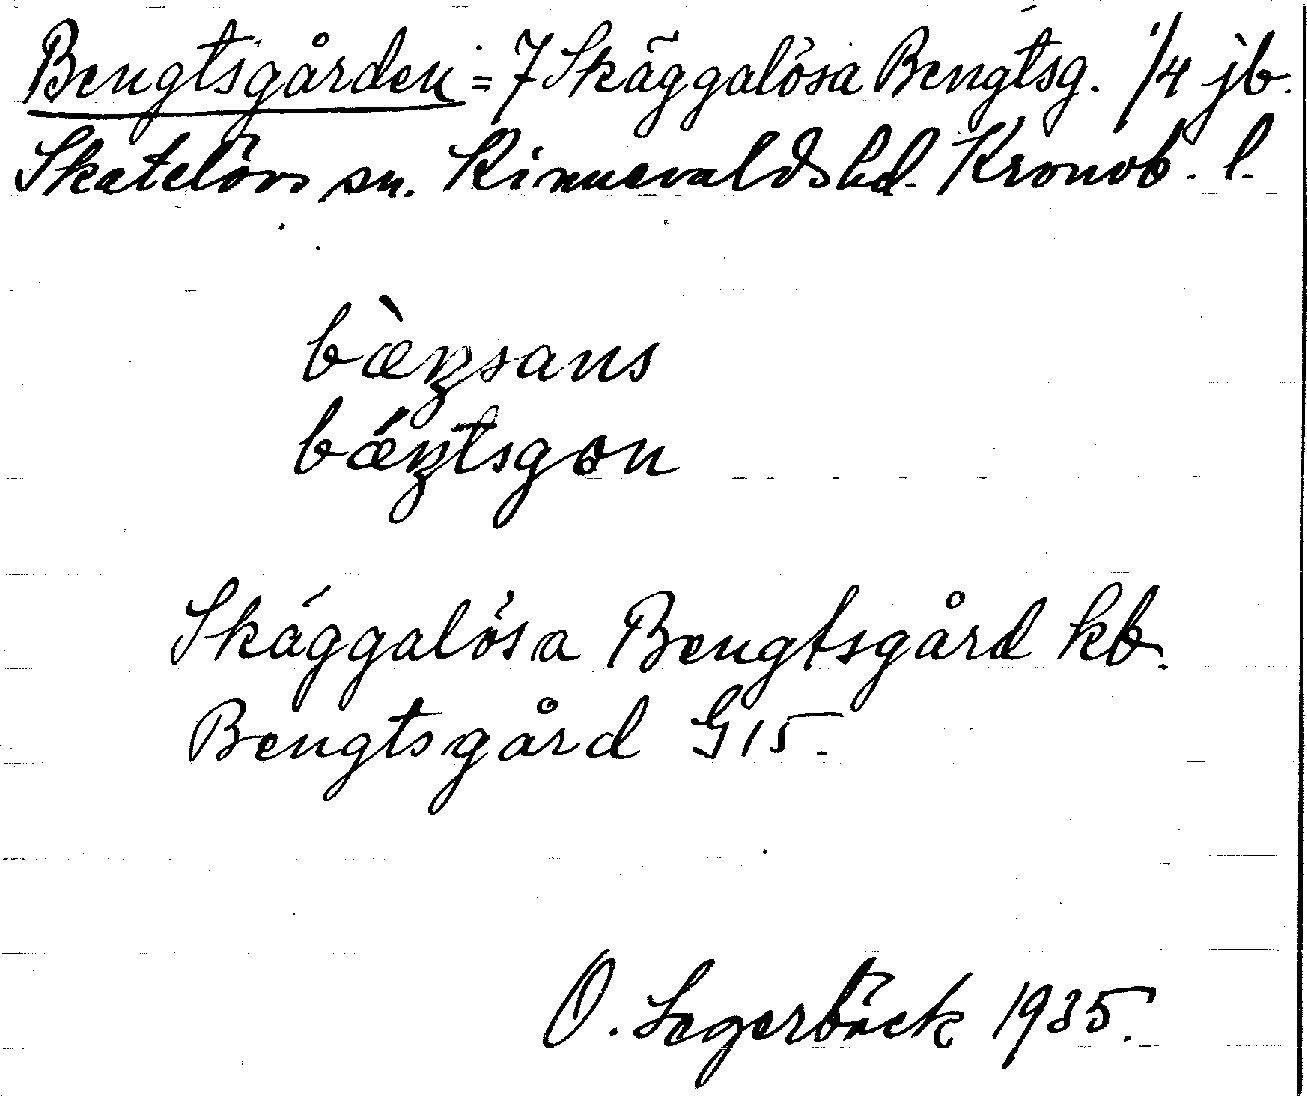 Bengtsgården = 7 Skäggalösa Bengtsg. 1/4 jb.
Skatelövs sn. Kinnevalds hd. Kronob. l.
bæ̀ŋsans
bǽŋtsgon
Skäggalösa Bengtsgård kb.
Bengtsgård G15.
O. Segerbäck 1935.